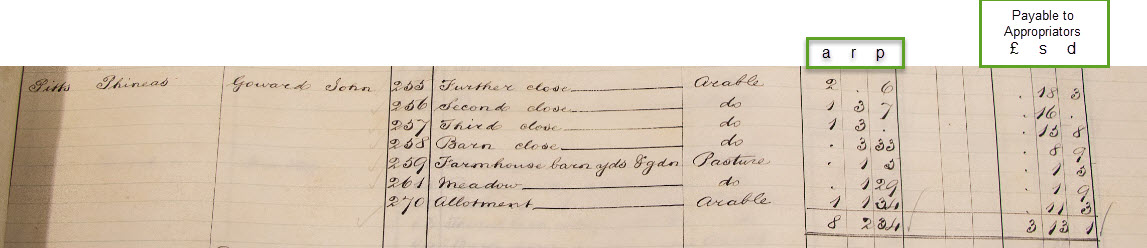 Payable to
Appropriators
a r p £ s d
Pitts Phineas Goward John 255 Further close Arable 2 . 6 . 18 3
256 Second close do 1 3 7 . 16 .
257 Third close do 1 3 . . 15 8
258 Barn close do . 3 33 . 8 9
259 Farmhouse barn yds & gdn Pasture . 1 5 . 1 5
261 Meadow do . 1 29 . 1 9
270 Allotment Arable 1 1 34 . 11 3
8 2 34 3 13 1